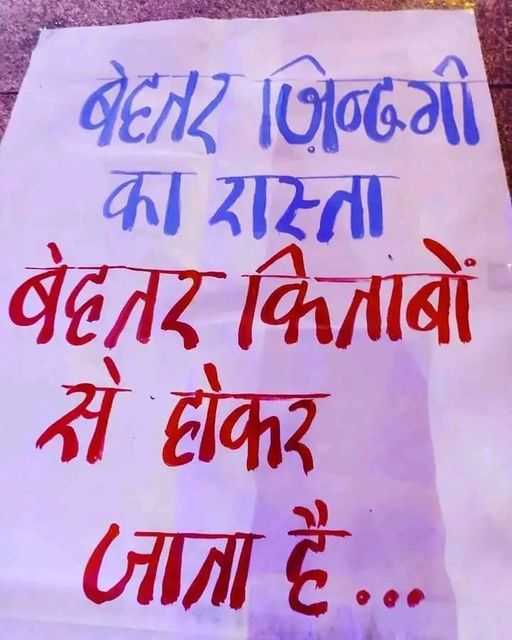 बेहतर ज़िन्दगी
का रास्ता
बेहतर किताबों
से होकर
जाता है...